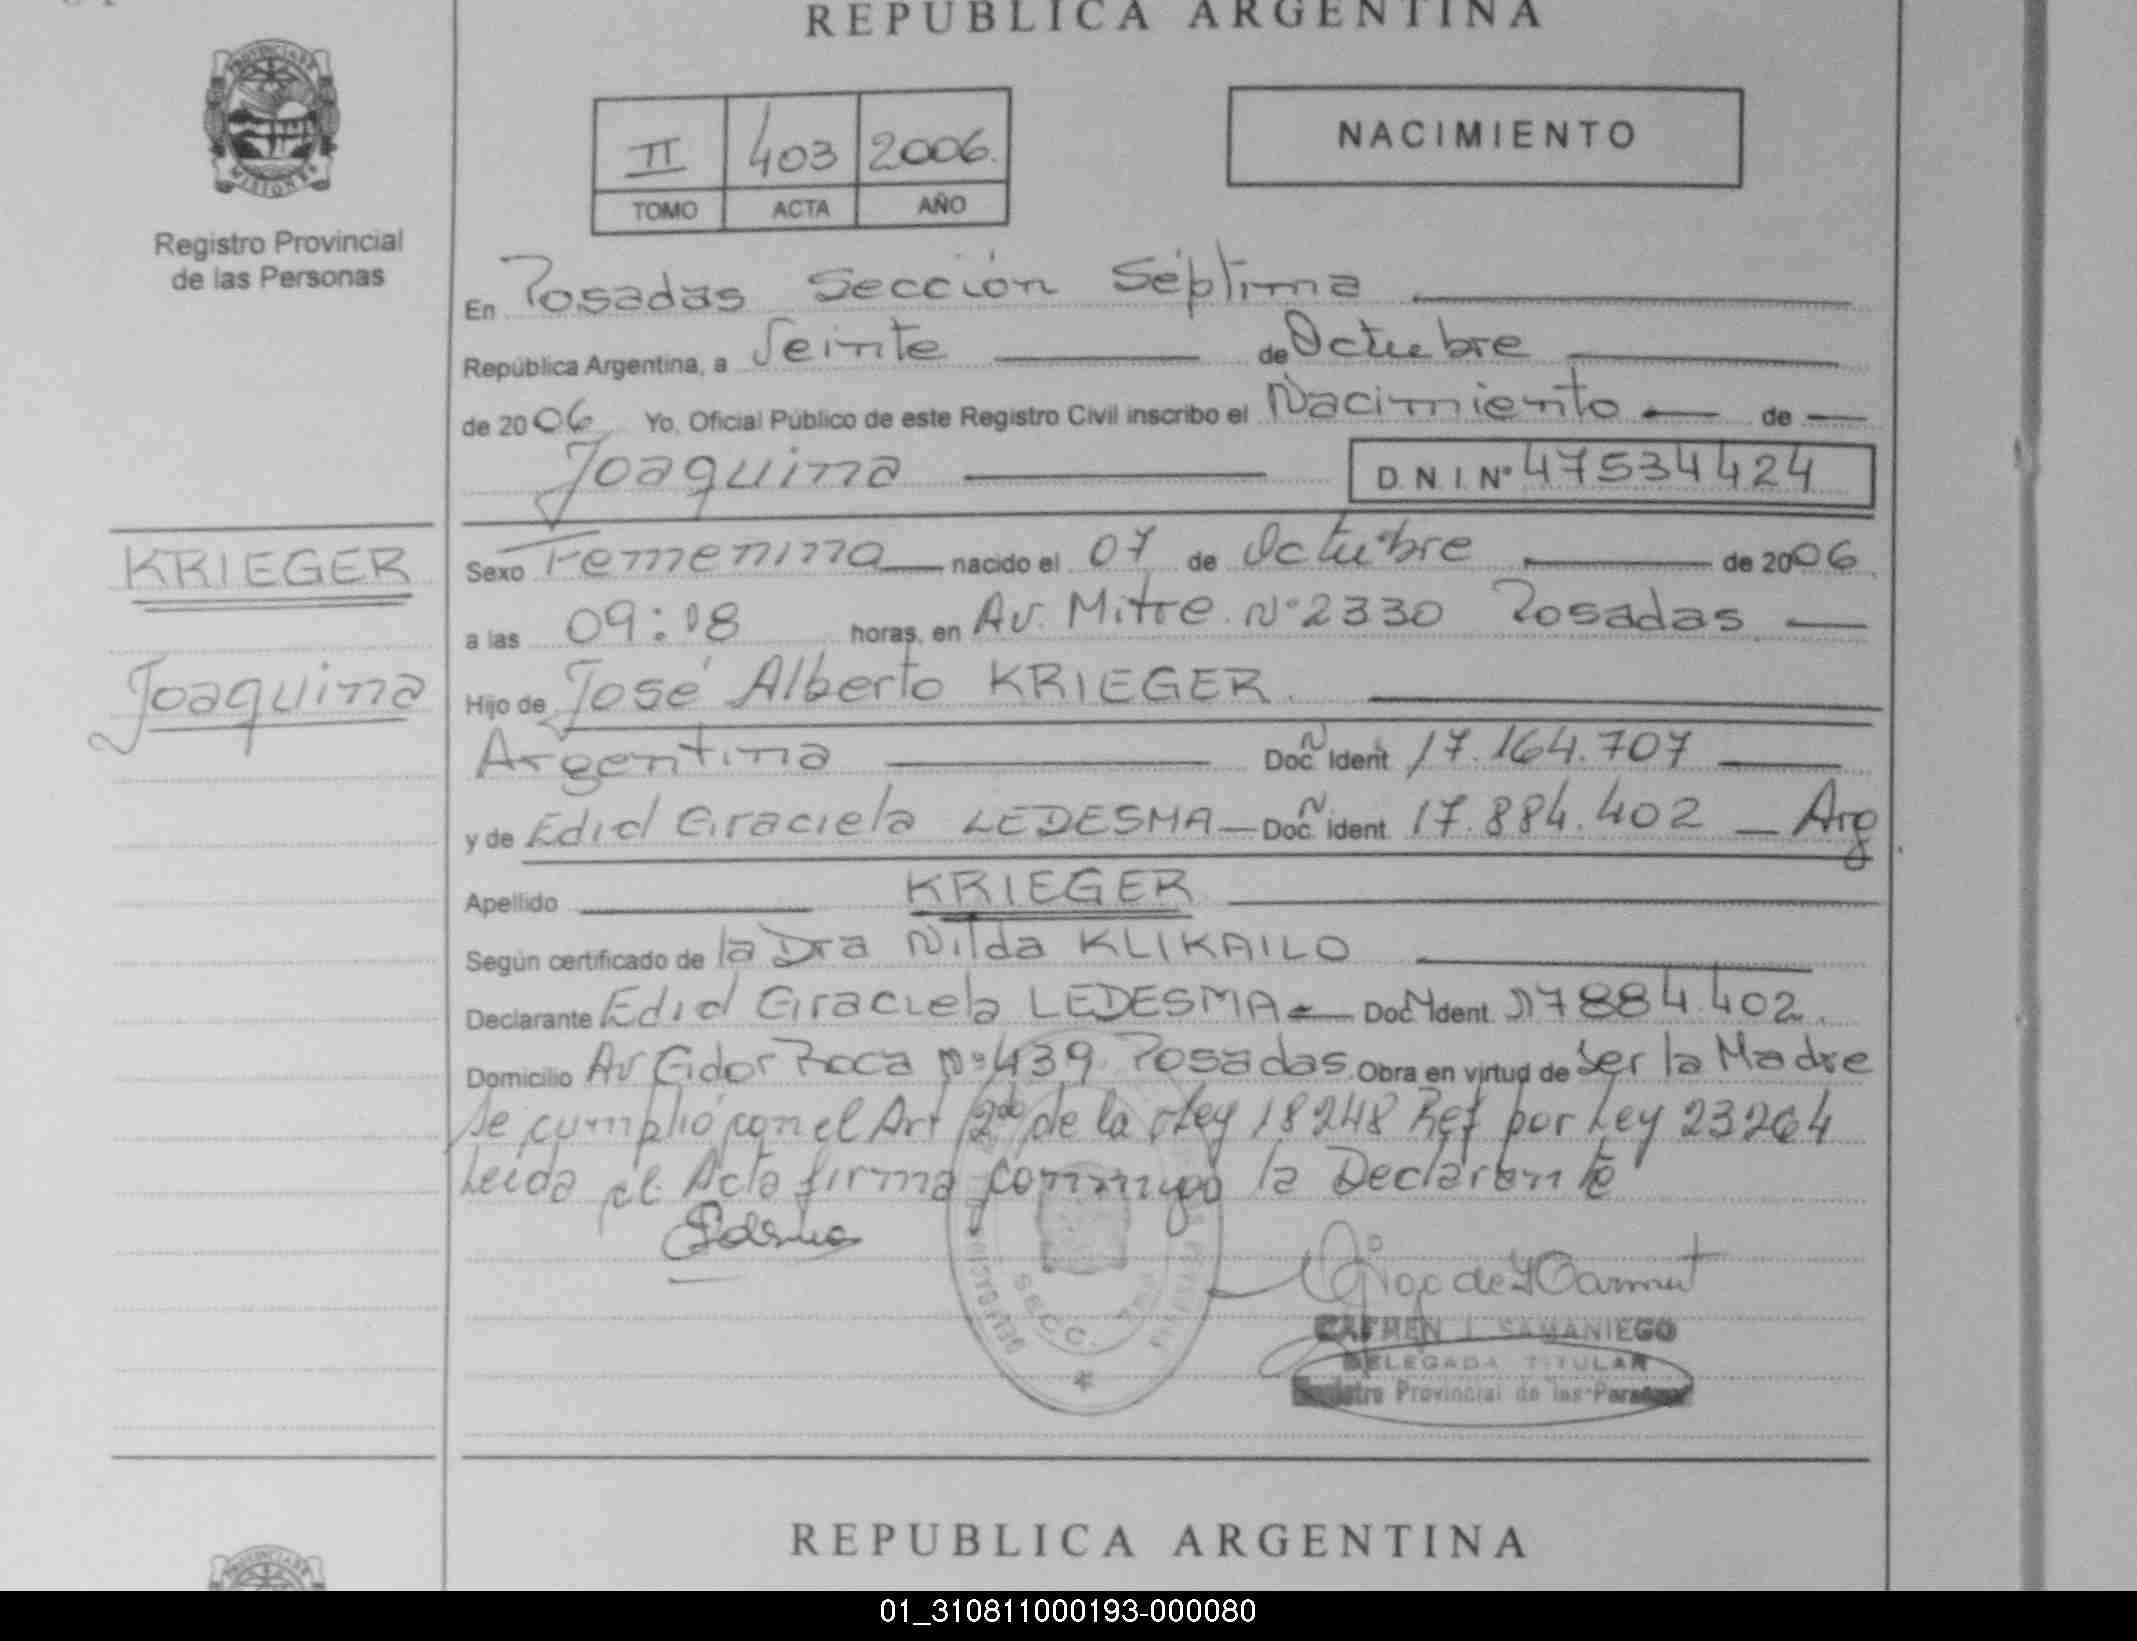 REPUBLICA ARGENTINA
PROVINCIA DE
MISIONES
Registro Provincial
de las Personas
II 403 2006.
TOMO ACTA AÑO
NACIMIENTO
En Posadas Sección Séptima
República Argentina, a Veinte de Octubre
de 2006 Yo, Oficial Público de este Registro Civil inscribo el Nacimiento de
Joaquina D.N.I. Nº 47534424
KRIEGER
Joaquina
Sexo Femenino nacido el 07 de Octubre de 2006
a las 09:08 horas, en Av. Mitre. Nº 2330 Posadas
Hijo de José Alberto KRIEGER.
Argentina Doc. N Ident 17.164.707
y de Edid Graciela LEDESMA Doc. N Ident. 17.884.402 Arg
Apellido KRIEGER
Según certificado de la Dra Nilda KLIKAILO
Declarante Edid Graciela LEDESMA Doc N Ident. 17884.402
Domicilio Av Gdor Roca Nº 439 Posadas. Obra en virtud de Ser la Madre
Se cumplió con el Art 2do de la Ley 18248 Ref por Ley 23264
Leida el Acta firma conmigo la Declarante
SAMANIEGO
DELEGADA TITULAR
Registro Provincial de las Personas
REPUBLICA ARGENTINA
01_310811000193-000080